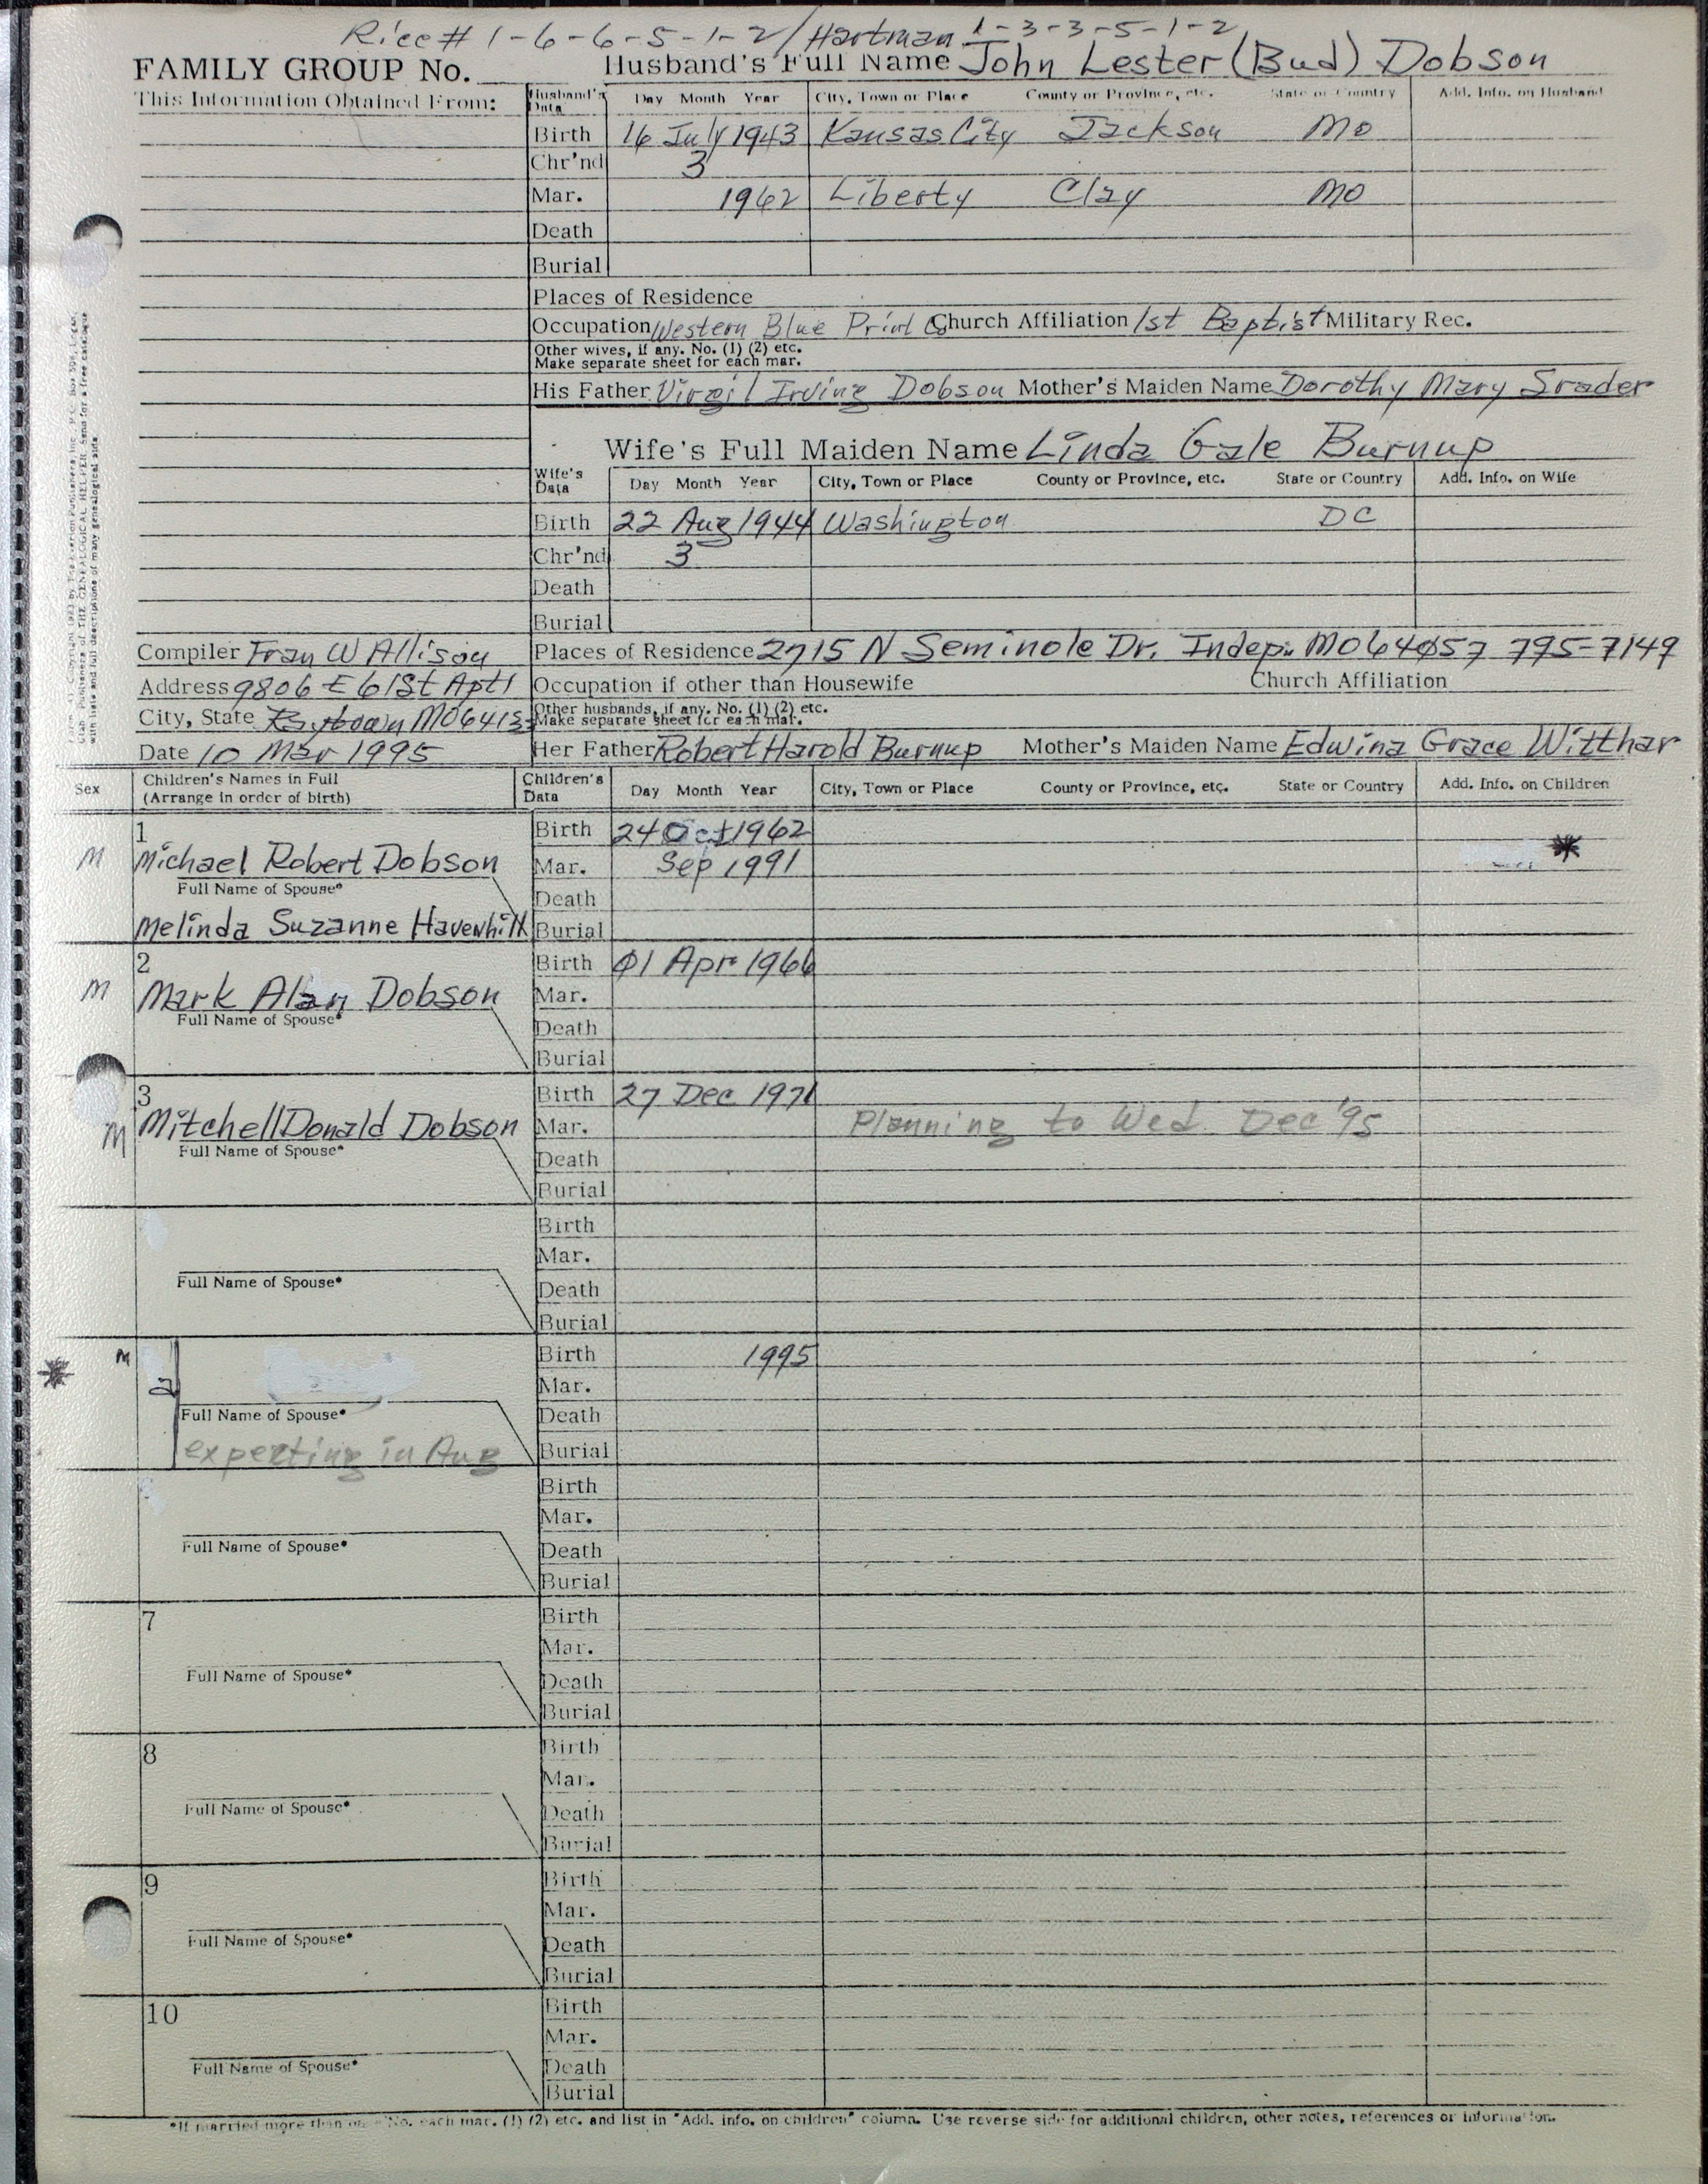 Rice # 1-6-6-5-1-2 / Hartman 1-3-3-5-1-2
FAMILY GROUP No. Husband's Full Name John Lester (Bud) Dobson
This Information Obtained From: Husband's Data Day Month Year City, Town or Place County or Province, etc. State or Country Add. Info. on Husband
Birth 16 July 1943 Kansas City Jackson MO
Chr'nd 3
Mar. 1962 Liberty Clay MO
Death
Burial
Places of Residence
Occupation Western Blue Print Co Church Affiliation 1st Baptist Military Rec.
Other wives, if any. No. (1) (2) etc.
Make separate sheet for each mar.
His Father Virgil Irving Dobson Mother's Maiden Name Dorothy Mary Srader
Wife's Full Maiden Name Linda Gale Burnup
Wife's Data Day Month Year City, Town or Place County or Province, etc. State or Country Add. Info. on Wife
Birth 22 Aug 1944 Washington DC
Chr'nd 3
Death
Burial
Compiler Fran W Allison Places of Residence 2715 N Seminole Dr. Indep. MO 64057 795-7149
Address 9806 E 61st Apt 1 Occupation if other than Housewife Church Affiliation
City, State Raytown MO 64133 Other husbands, if any. No. (1) (2) etc.
Make separate sheet for each mar.
Date 10 Mar 1995 Her Father Robert Harold Burnup Mother's Maiden Name Edwina Grace Witthar
Sex Children's Names in Full Children's Data Day Month Year City, Town or Place County or Province, etc. State or Country Add. Info. on Children
(Arrange in order of birth)
1 Birth 24 Oct 1962
M Michael Robert Dobson Mar. Sep 1991 *
Full Name of Spouse* Death
Melinda Suzanne Havenhill Burial
2 Birth 01 Apr 1966
M Mark Alan Dobson Mar.
Full Name of Spouse* Death
Burial
3 Birth 27 Dec 1971
M Mitchell Donald Dobson Mar. Planning to Wed. Dec '95
Full Name of Spouse* Death
Burial
Birth
Mar.
Full Name of Spouse* Death
Burial
* M Birth 1995
a Mar.
Full Name of Spouse* Death
expecting in Aug Burial
Birth
Mar.
Full Name of Spouse* Death
Burial
7 Birth
Mar.
Full Name of Spouse* Death
Burial
8 Birth
Mar.
Full Name of Spouse* Death
Burial
9 Birth
Mar.
Full Name of Spouse* Death
Burial
10 Birth
Mar.
Full Name of Spouse* Death
Burial
*If married more than once No. each mar. (1) (2) etc. and list in "Add. info. on children" column. Use reverse side for additional children, other notes, references or information.